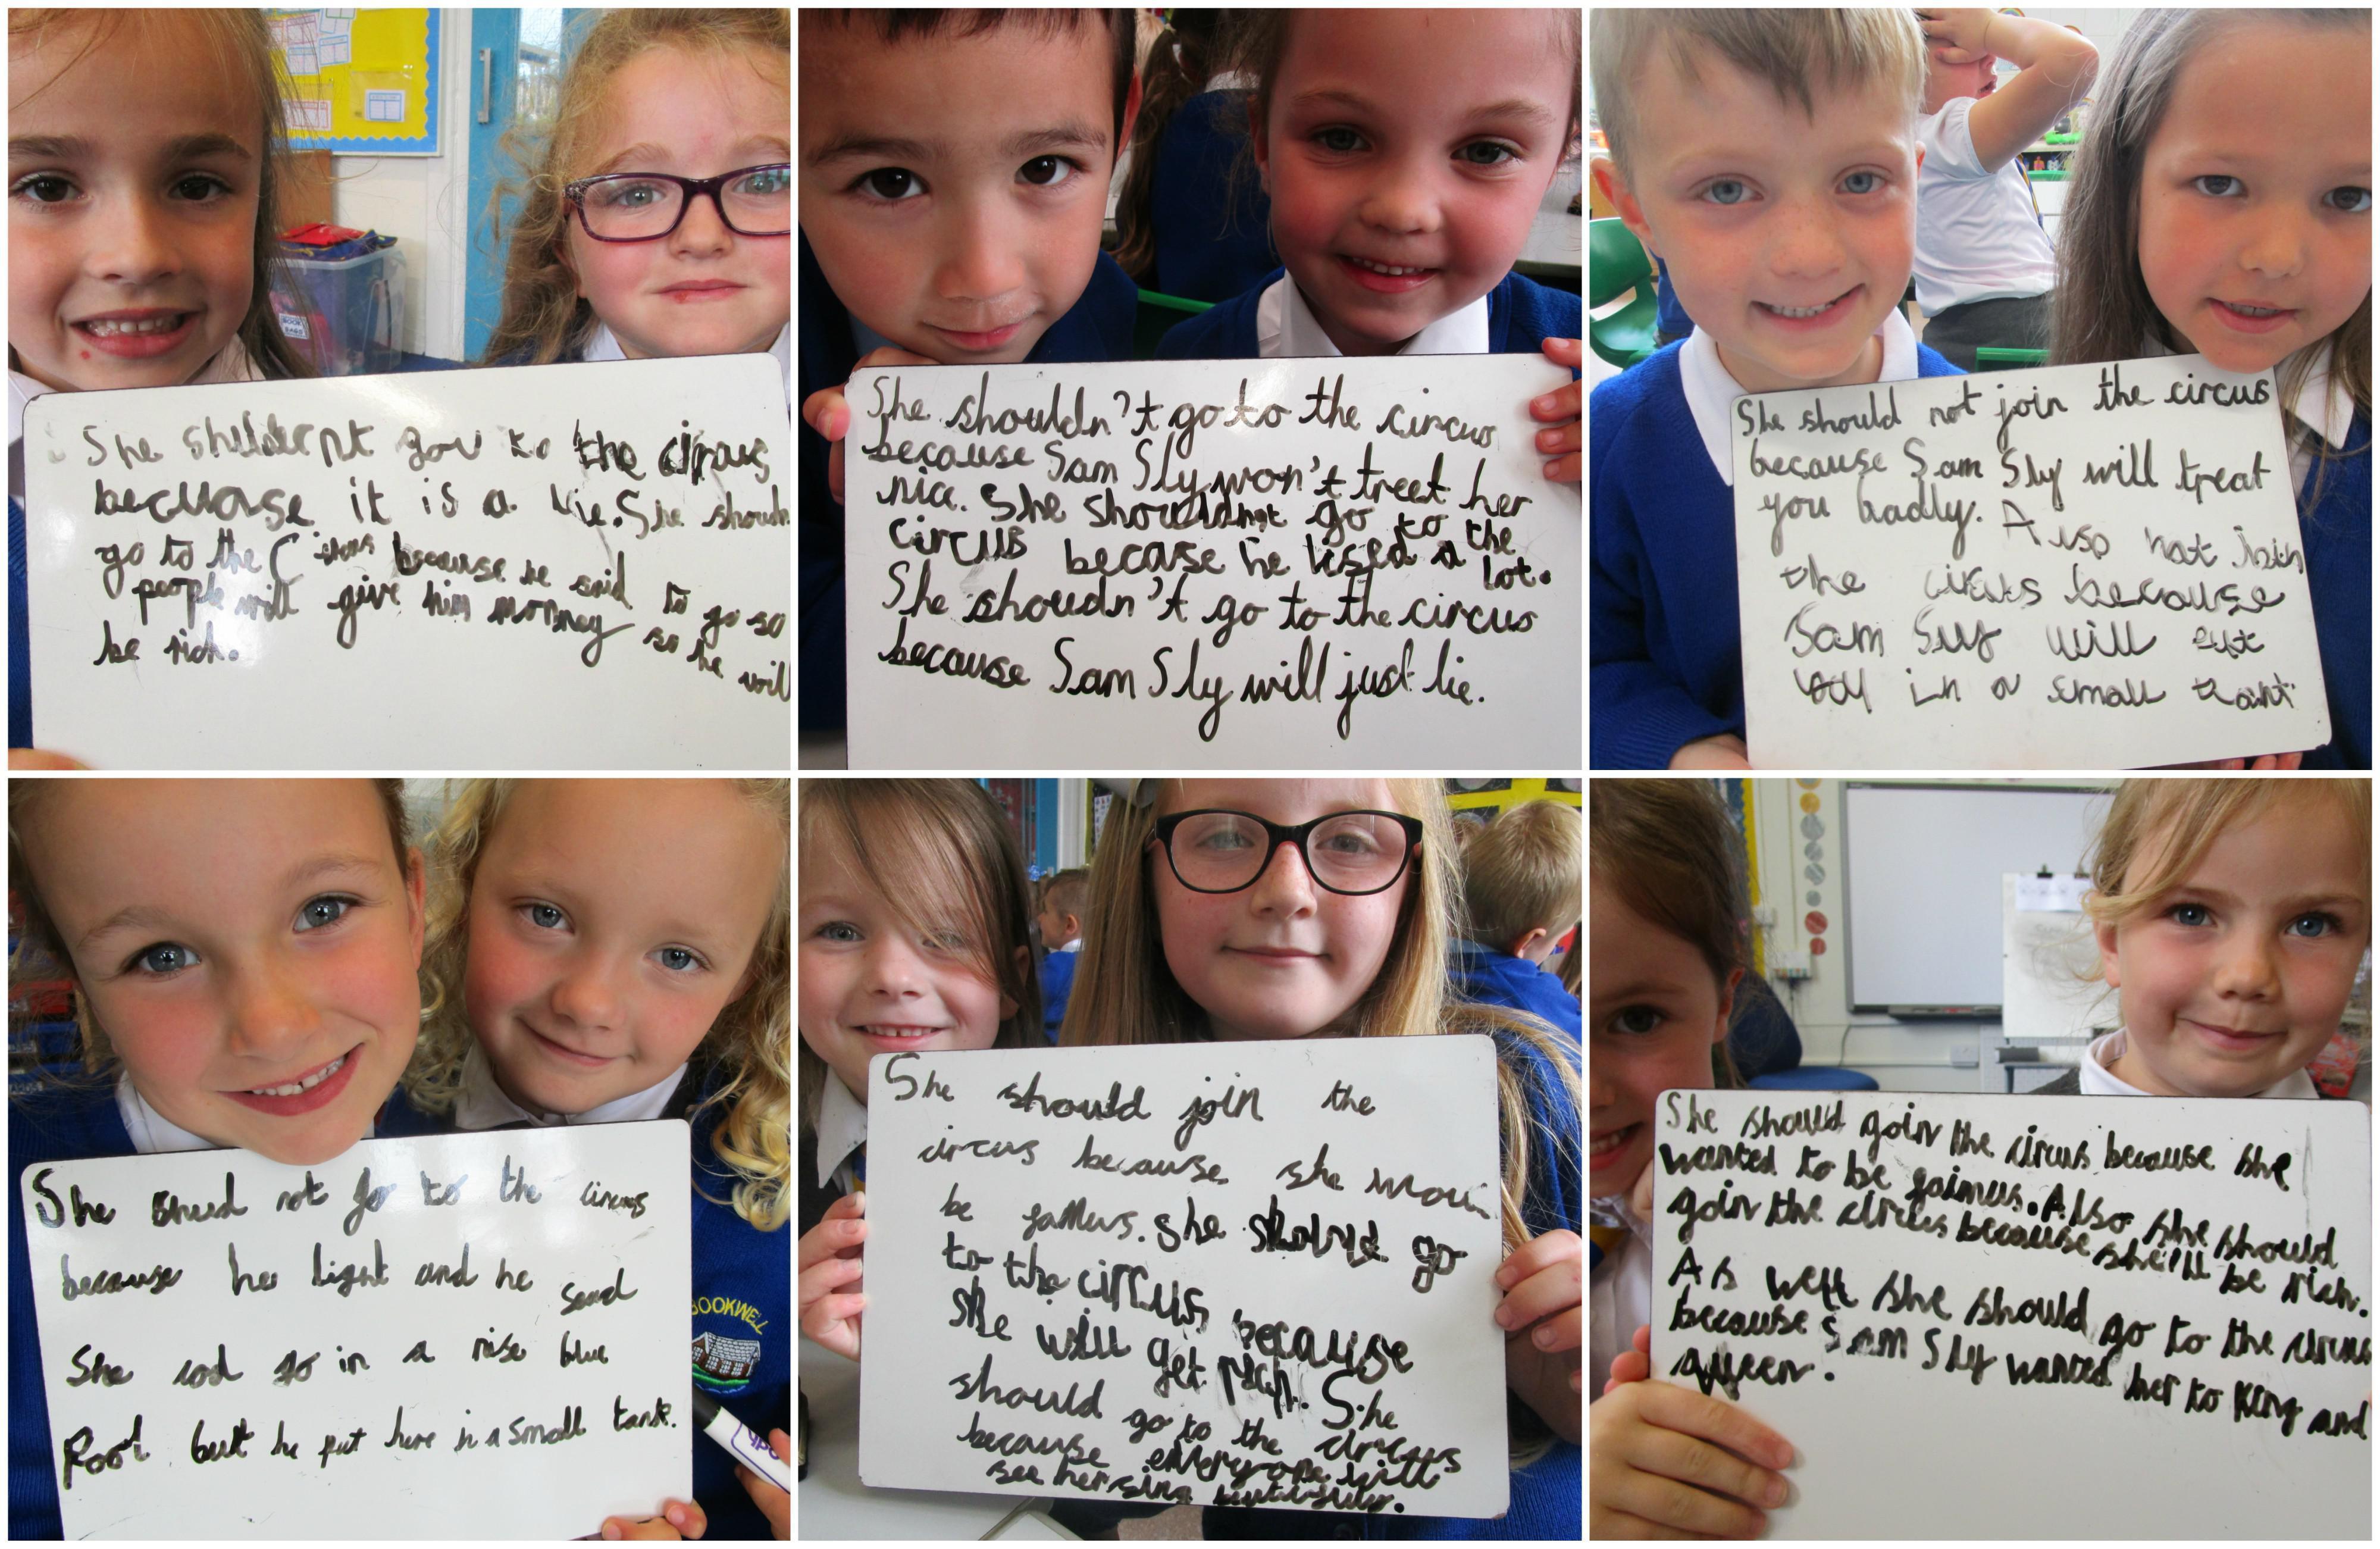 She shuldernt gow to the circus
becuase it is a lie. She should
go to the Circus because he said to go so
people will give him monney so he will
be rich.
BOOK
BAGS
She shouldn't go to the circus
because Sam Sly won't treet her
nice. She should not go to the
circus becase he lised a lot.
She shoudn't go to the circus
because Sam Sly will just lie.
She should not join the circus
because Sam Sly will treat
you badly. Also not join
the circus because
Sam Sly will
you in a small
She shud not go to the circus
because hes light and he said
She cod go in a nise blue
Pool but he put here in a small tank.
BOOKWELL
She should join the
circus because she
be famus. She should go
to the circus because
she will get rich. She
should go to the circus
because everyone will
see her sing
She should goin the circus because she
wanted to be faimus. Also she should
goin the circus because she'll be rich.
As well she should go to the circus
because Sam Sly wanted her to King and
queen.